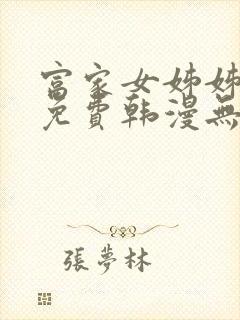 富家女姊姊
免費韩漫無
張夢林